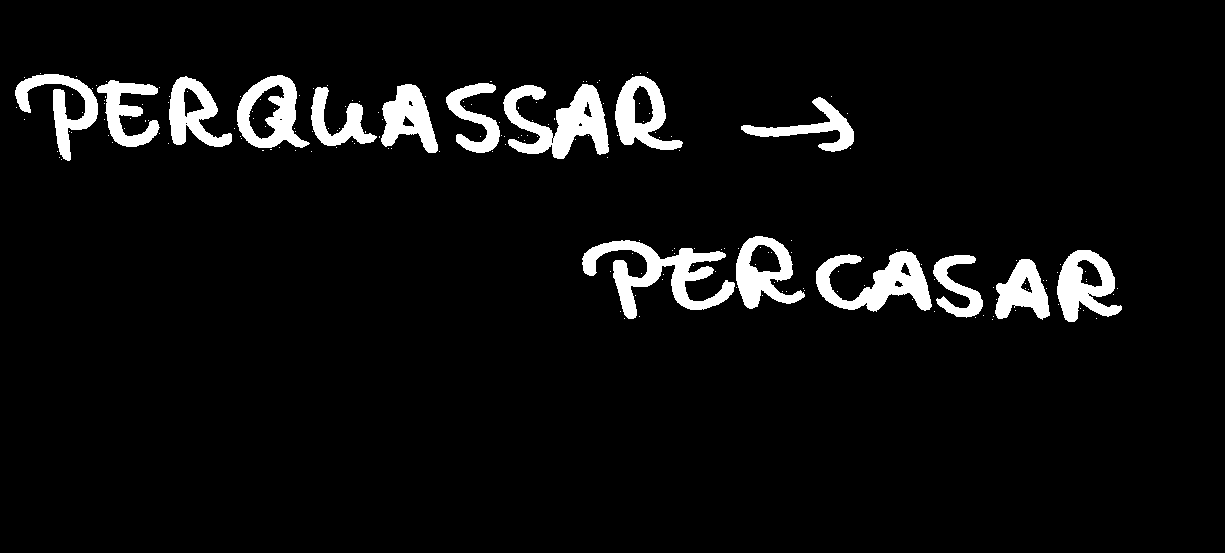 PERQUASSAR →
PERCASAR